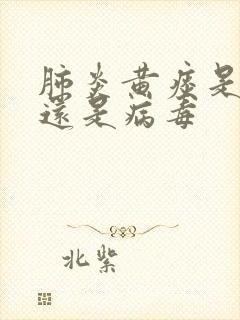 肺炎黄症是
還是病毒
北紫